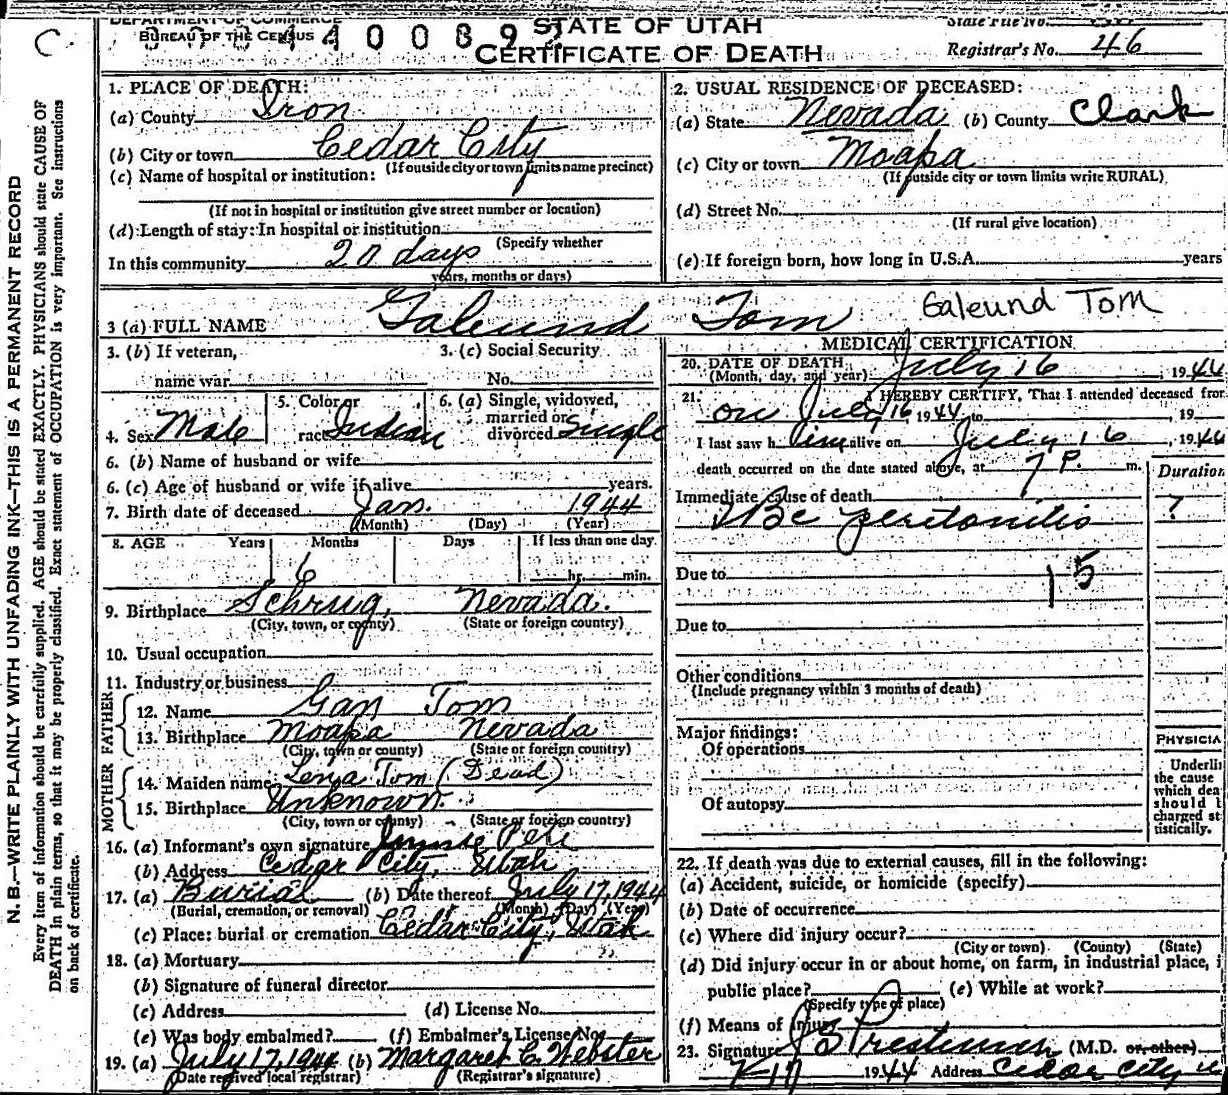 C
DEPARTMENT OF COMMERCE
BUREAU OF THE CENSUS
4 0 0 8 9
STATE OF UTAH
CERTIFICATE OF DEATH
State File No.
Registrar's No. 46
1. PLACE OF DEATH:
(a) County Iron
(b) City or town Cedar City
(If outside city or town limits name precinct)
(c) Name of hospital or institution:
(If not in hospital or institution give street number or location)
(d) Length of stay: In hospital or institution
(Specify whether
In this community 20 days
years, months or days)
2. USUAL RESIDENCE OF DECEASED:
(a) State Nevada (b) County Clark
(c) City or town Moapa
(If outside city or town limits write RURAL)
(d) Street No.
(If rural give location)
(e) If foreign born, how long in U.S.A. years
3 (a) FULL NAME Galeund Tom Galeund Tom
3. (b) If veteran,
name war
3. (c) Social Security
No.
4. Sex Male
5. Color or
race Indian
6. (a) Single, widowed,
married or
divorced Single
6. (b) Name of husband or wife
6. (c) Age of husband or wife if alive years.
7. Birth date of deceased Jan. 1944
(Month) (Day) (Year)
8. AGE Years Months Days If less than one day
6
hr. min.
9. Birthplace Schrug, Nevada.
(City, town, or county) (State or foreign country)
10. Usual occupation
11. Industry or business
FATHER
12. Name Gan Tom
13. Birthplace Moapa Nevada
(City, town or county) (State or foreign country)
MOTHER
14. Maiden name Lena Tom (Dead)
15. Birthplace Unknown.
(City, town or county) (State or foreign country)
16. (a) Informant's own signature Pete
(b) Address Cedar City, Utah
17. (a) Burial (b) Date thereof July 17, 1944
(Burial, cremation, or removal) (Month) (Day) (Year)
(c) Place: burial or cremation Cedar City, Utah
18. (a) Mortuary
(b) Signature of funeral director
(c) Address (d) License No.
(e) Was body embalmed? (f) Embalmer's License No.
19. (a) July 17, 1944 (b) Margaret C. Webster
(Date received local registrar) (Registrar's signature)
MEDICAL CERTIFICATION
20. DATE OF DEATH July 16, 1944
(Month, day, and year)
21. I HEREBY CERTIFY, That I attended deceased from
on July 16 1944 to 19
I last saw him alive on July 16, 1944
death occurred on the date stated above, at 7 P. m.
Duration
Immediate cause of death
TBc peritonitis ?
Due to 15
Due to
Other conditions
(Include pregnancy within 3 months of death)
Major findings:
Of operations
Of autopsy
PHYSICIA
Underli
the cause
which dea
should
charged st
tistically.
22. If death was due to external causes, fill in the following:
(a) Accident, suicide, or homicide (specify)
(b) Date of occurrence
(c) Where did injury occur?
(City or town) (County) (State)
(d) Did injury occur in or about home, on farm, in industrial place, i
public place? (e) While at work?
(Specify type of place)
(f) Means of Injury
23. Signature (M.D. or other)
7-17 1944 Address Cedar City
N. B.—WRITE PLAINLY WITH UNFADING INK—THIS IS A PERMANENT RECORD
Every item of information should be carefully supplied. AGE should be stated EXACTLY. PHYSICIANS should state CAUSE OF
DEATH in plain terms, so that it may be properly classified. Exact statement of OCCUPATION is very important. See instructions
on back of certificate.